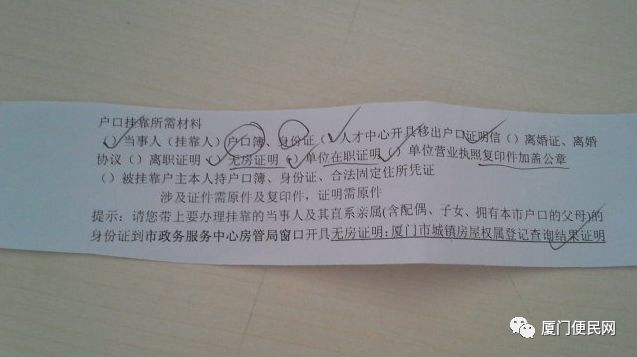 户口挂靠所需材料
()当事人（挂靠人）户口簿、身份证()人才中心开具移出户口证明信()离婚证、离婚
协议()离职证明()无房证明()单位在职证明()单位营业执照复印件加盖公章
()被挂靠户主本人持户口簿、身份证、合法固定住所凭证
涉及证件需原件及复印件，证明需原件
提示：请您带上要办理挂靠的当事人及其直系亲属(含配偶、子女、拥有本市户口的父母)的
身份证到市政务服务中心房管局窗口开具无房证明:厦门市城镇房屋权属登记查询结果证明
厦门便民网